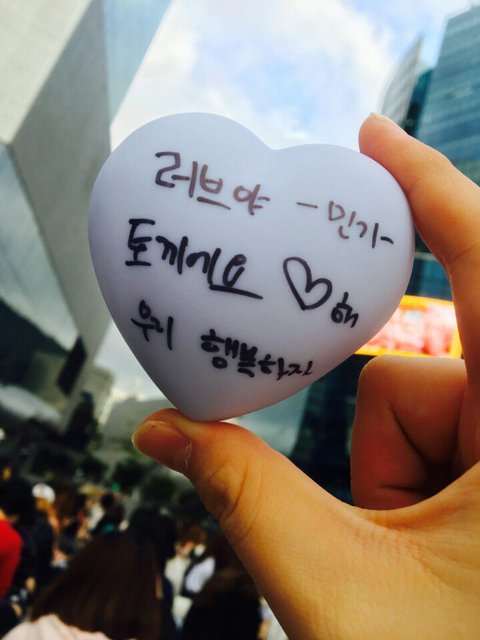 러브야 -민기-
토끼에요 ♡해
우리 행복하자